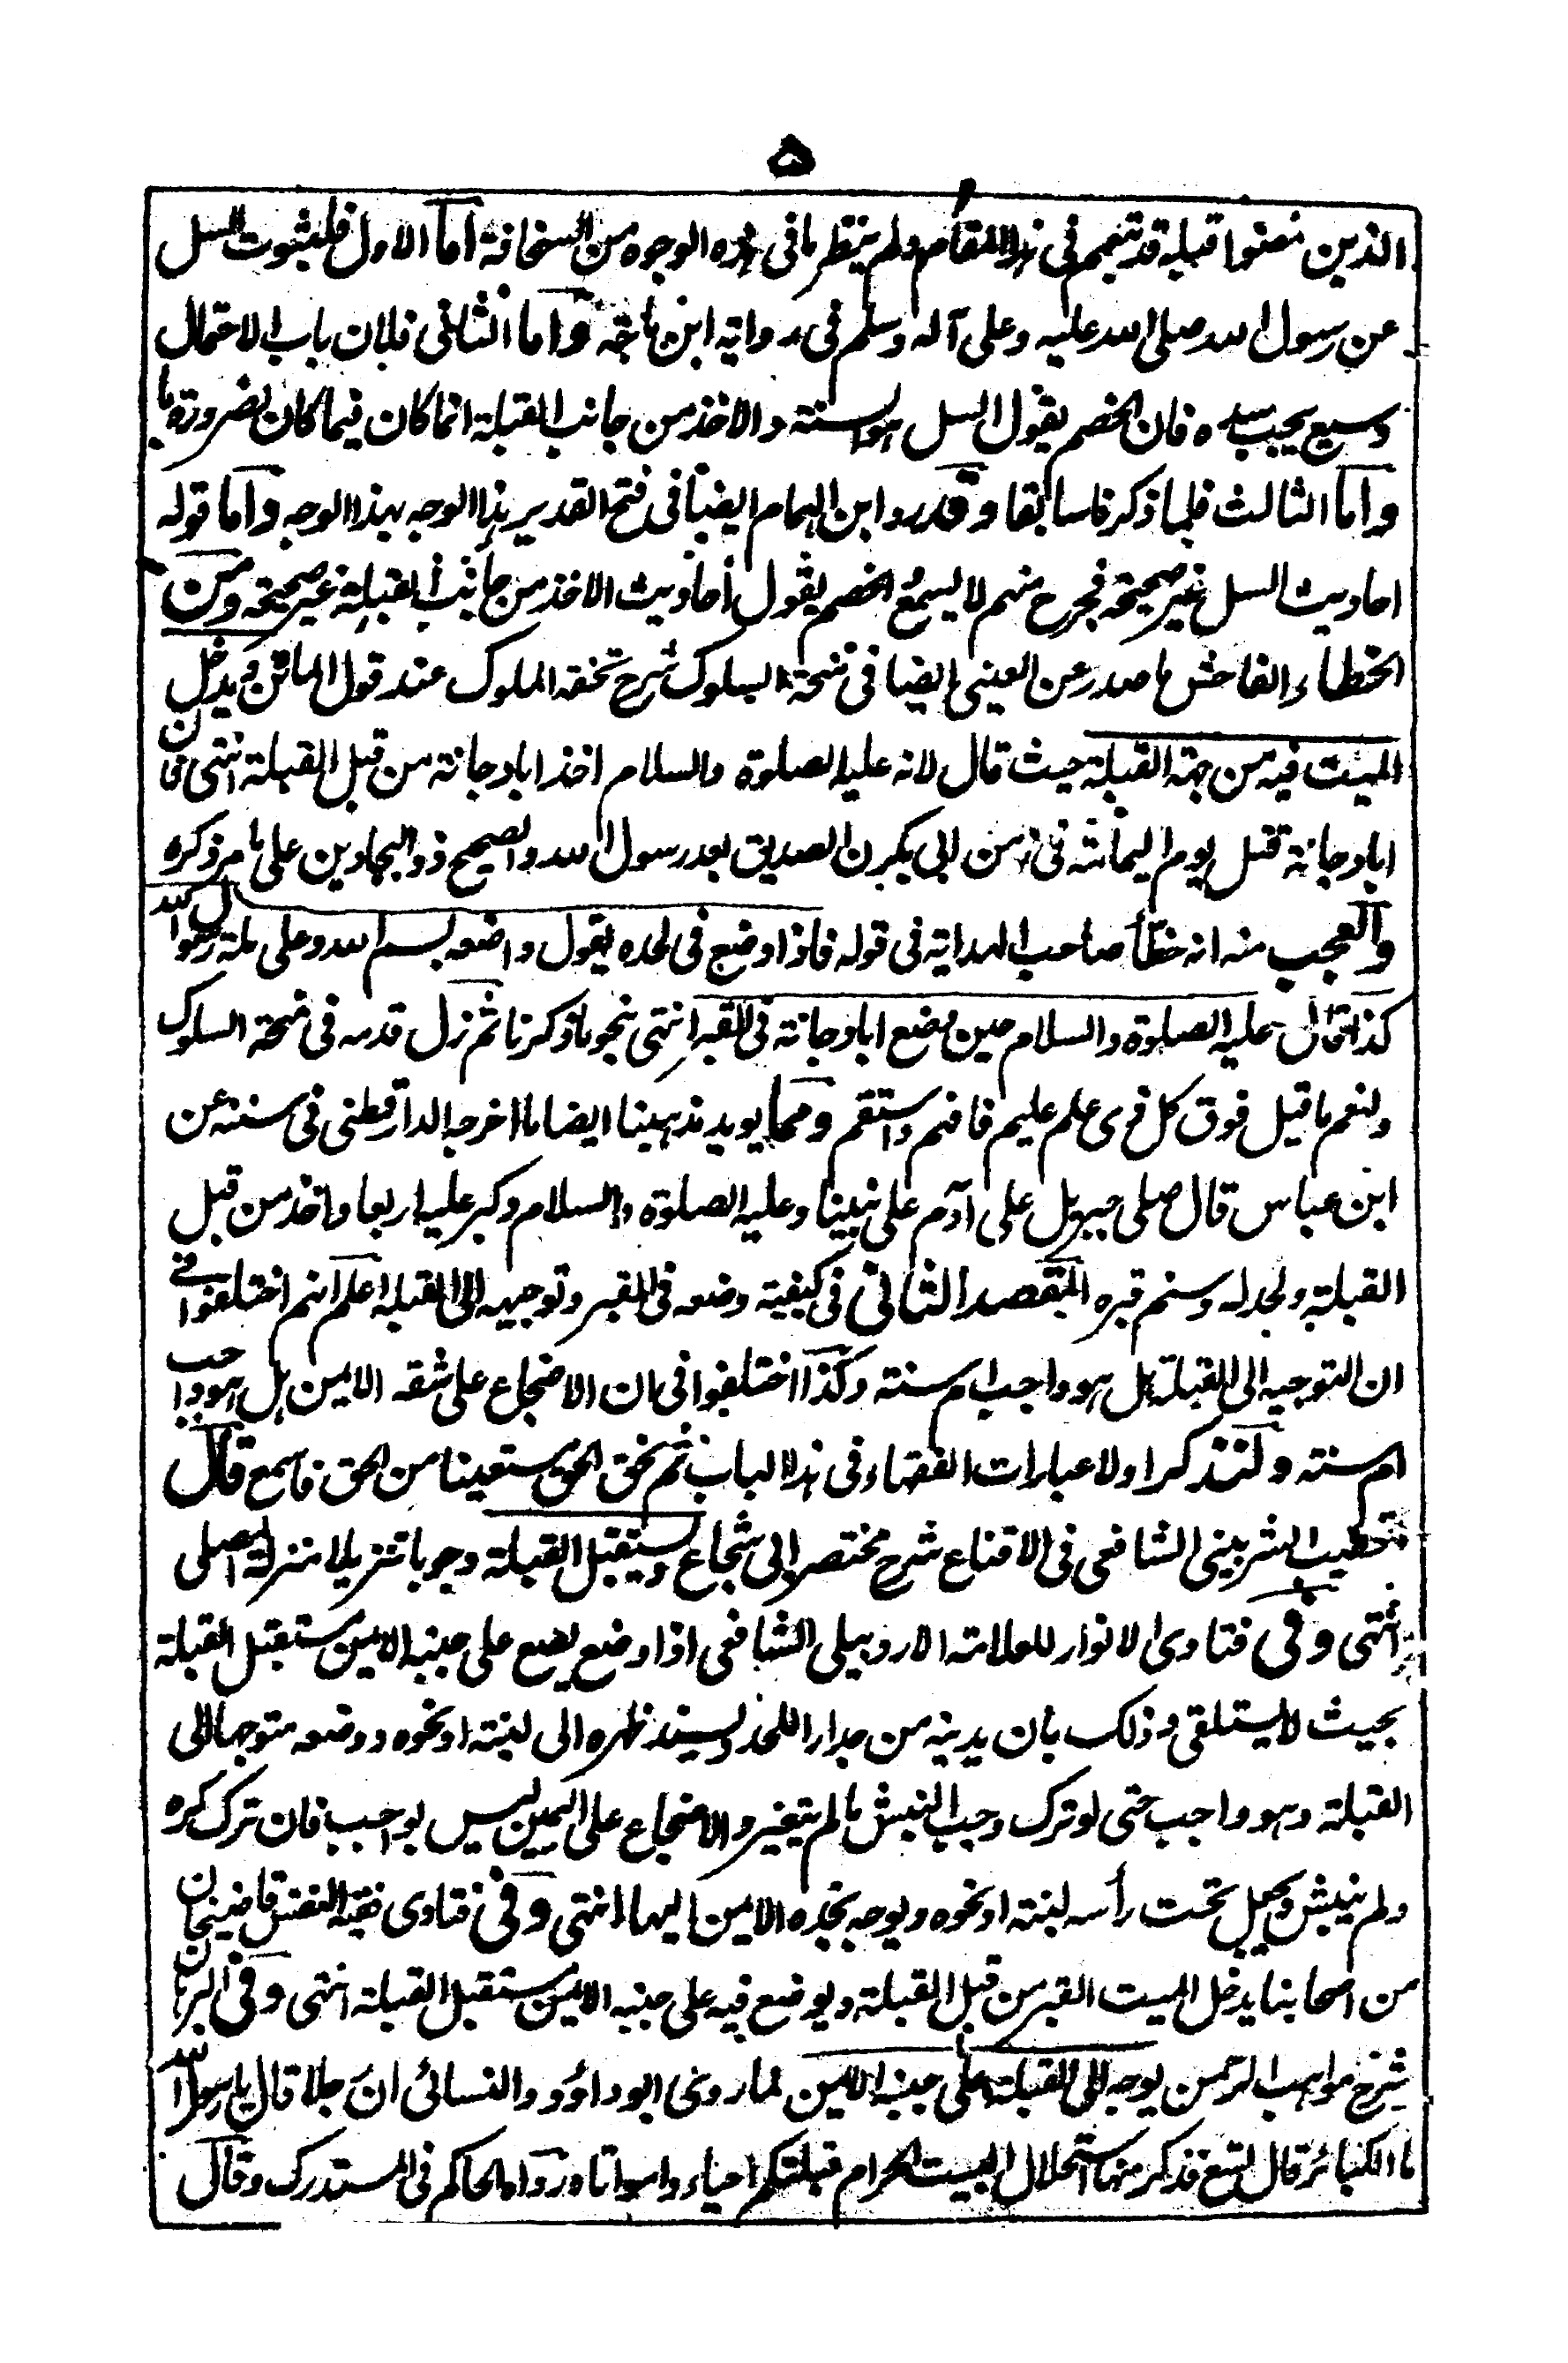 ٥
الذين صنفوا قبله قد تبعهم فى هذا المقام ولم ينظر ما فى هذه الوجوه من السخافة اما الاول فلثبوت السل
عن رسول الله صلى الله عليه وعلى آله وسلم فى رواية ابن ماجة واما الثانى فلان باب الاحتمال
وسيع يجب سده فان الخصم يقول السل هو السنة والاخذ من جانب القبلة انما كان فيما كان لضرورة ما
واما الثالث فلما ذكرنا سابقا وقد رد ابن الهمام ايضا فى فتح القدير هذا الوجه بهذا الوجه واما قوله
احاديث السل غير صحيحة فجرح منهم لا يسمع الخصم يقول احاديث الاخذ من جانب القبلة غير صحيحة ومن
الخطاء الفاحش ما صدر عن العينى ايضا فى منحة السلوك شرح تحفة الملوك عند قول الماتن ويدخل
الميت فيه من جهة القبلة حيث قال لانه عليه الصلوة والسلام اخذ ابا دجانة من قبل القبلة انتهى فان
ابا دجانة قتل يوم اليمامة فى زمن ابى بكر ن الصديق بعد رسول الله والصحيح ذو البجادين على ما مر ذكره
والعجب منه انه خطأ صاحب الهداية فى قوله فاذا وضع فى لحده يقول واضعه بسم الله وعلى ملة رسول الله
كذا قال عليه الصلوة والسلام حين وضع ابا دجانة فى القبر انتهى بنحو ما ذكرنا ثم زل قدمه فى منحة السلوك
ولنعم ما قيل فوق كل ذى علم عليم فافهم واستقم ومما يويد مذهبنا ايضا ما اخرجه الدارقطنى فى سننه عن
ابن عباس قال صلى جبريل على آدم على نبينا وعليه الصلوة والسلام وكبر عليه اربعا واخذ من قبل
القبلة ولحد له وسنم قبره المقصد الثانى فى كيفية وضعه فى القبر وتوجيهه الى القبلة اعلم انهم اختلفوا فى
ان التوجيه الى القبلة هل هو واجب ام سنة وكذا اختلفوا فى ان الاضجاع على شقه الايمن هل هو واجب
ام سنة ولنذكر اولا عبارات الفقهاء فى هذا الباب ثم نحق الحق مستعينا من الحق فاسمع قال
الخطيب الشربينى الشافعى فى الاقناع شرح مختصر ابى شجاع ويستقبل القبلة وجوبا تنزيلا منزلة المصلى
انتهى وفى فتاوى الانوار للعلامة الاردبيلى الشافعى اذا وضع يضع على جنبه الايمن مستقبل القبلة
بحيث لا يستلقى وذلك بان يدينه من جدار اللحد ويسند ظهره الى لبنة او نحوه ووضعه متوجها الى
القبلة وهو واجب حتى لو ترك وجب النبش ما لم يتغير والاضجاع على اليمين ليس بواجب فان ترك كره
ولم ينبش ويجعل تحت رأسه لبنة او نحوه ويوجه بخده الايمن اليها انتهى وفى فتاوى فقيه النفس قاضيخان
من اصحابنا يدخل الميت القبر من قبل القبلة ويوضع فيه على جنبه الايمن مستقبل القبلة انتهى وفى البرهان
شرح مواهب الرحمن يوجه الى القبلة على جنبه الايمن لما روى ابو داؤد والنسائى ان رجلا قال يا رسول الله
ما الكبائر قال تسع فذكر منها استحلال البيت الحرام قبلتكم احياء وامواتا ورواه الحاكم فى المستدرك وقال